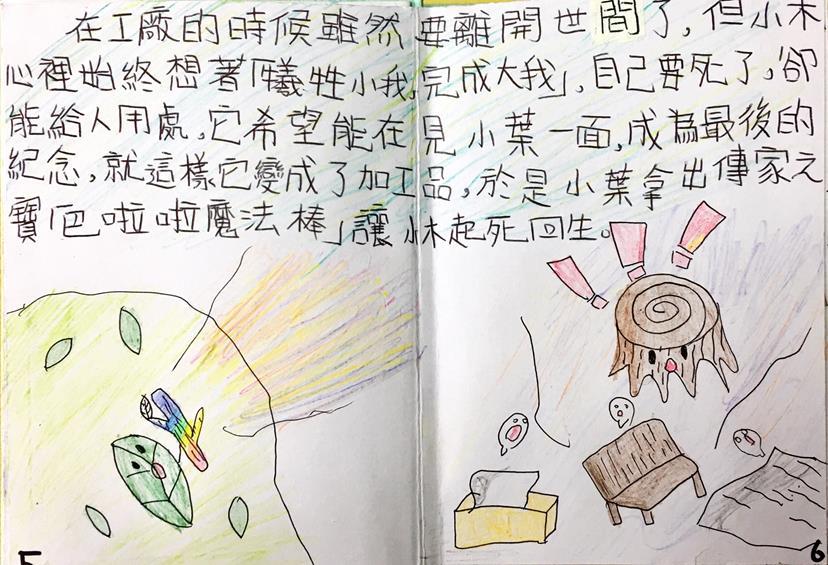 在工廠的時候雖然要離開世間了,但小木
心裡始終想著「犧牲小我,完成大我」,自己要死了,卻
能給人用處,它希望能在見小葉一面,成為最後的
紀念,就這樣它變成了加工品,於是小葉拿出傳家之
寶「巴啦啦魔法棒」讓小木起死回生。
5
6